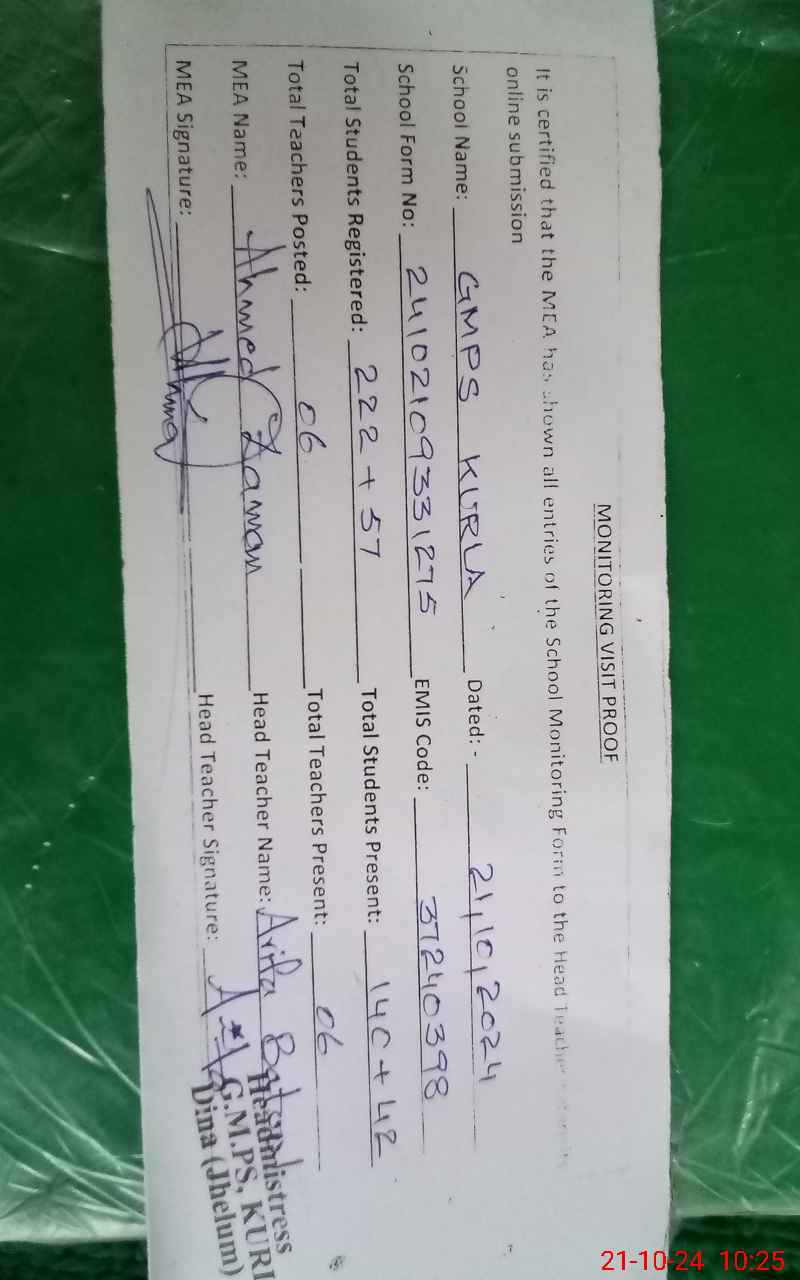 MONITORING VISIT PROOF
It is certified that the MEA has shown all entries of the School Monitoring Form to the Head Teacher
online submission
School Name: GMPS KURLA Dated: - 21,10,2024
School Form No: 24102109331275 EMIS Code: 37240398
Total Students Registered: 222 + 57 Total Students Present: 140 + 42
Total Teachers Posted: 06 Total Teachers Present: 06
MEA Name: Ahmed Zaman Head Teacher Name: Arifa Batool
MEA Signature: Head Teacher Signature:
Headmistress
G.M.PS, KURL
Dina (Jhelum)
21-10-24 10:25